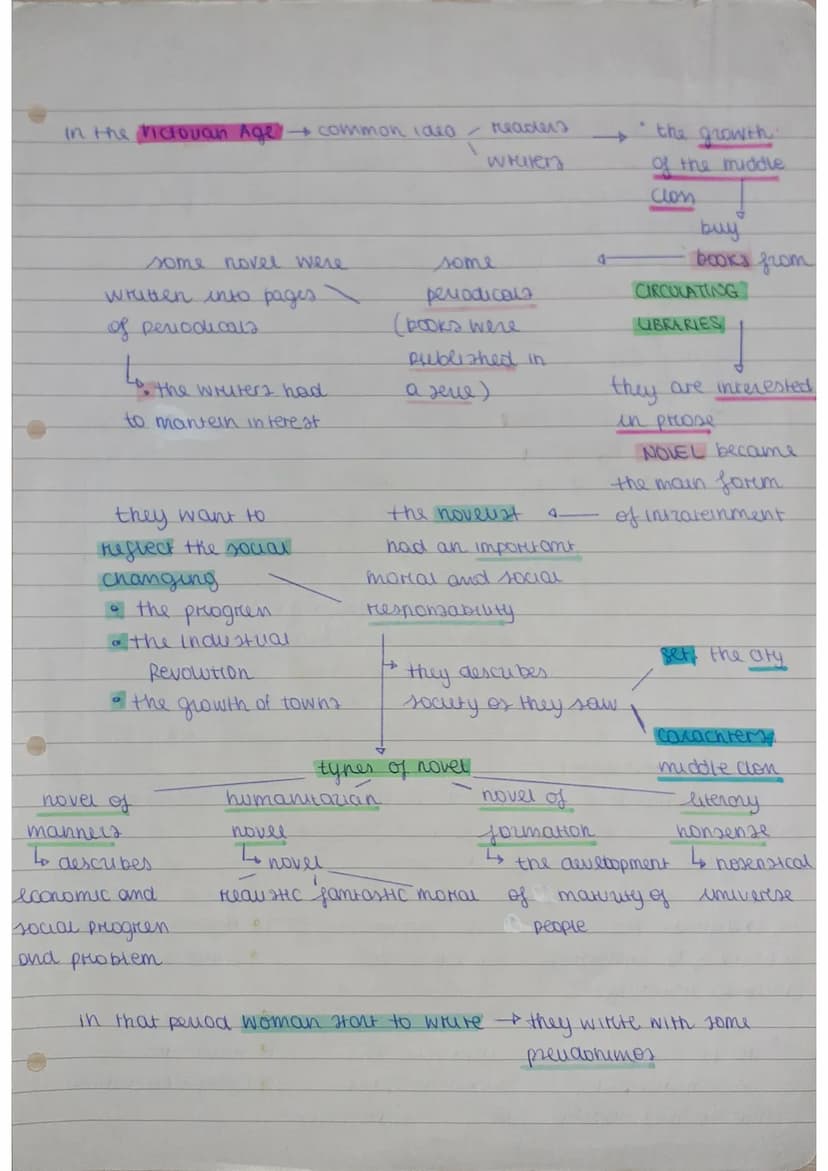 in the Victorian Age → common idea readers → • the growth
writers of the middle
class
buy
books from
CIRCULATING
LIBRARIES
they are interested
in prose
NOVEL became
the main form
of intrateinment
some
periodicals
(books were
published in
a serie)
some novel were
written into pages
of periodicals
• the writers had
to mantein interest
the novelist
had an important
moral and social
responsability
they want to
reflect the social
changing
• the progress
• the industrial
Revolution
• the growth of towns
→ they describes
society as they saw
set, the city
carachters
middle class
types of novel
novel of
manners
↳ describes
economic and
social progress
and problem
humanitarian
novel
↳ novel
realistic fantastic moral
novel of
formation
↳ the development
of maturity of
people
literary
nonsense
↳ nosensical
universe
in that period woman start to write → they write with some
pseudonimos